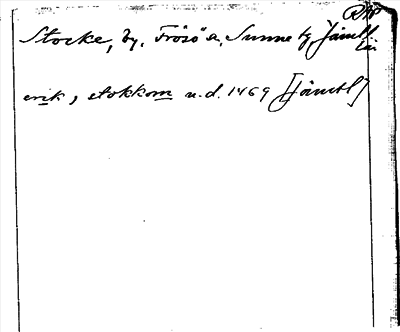 DMP
Stocke, by, Frösö s., Sunne tg, Jämtl.
län
erik, stokkom u.d. 1469 [Jämtl]